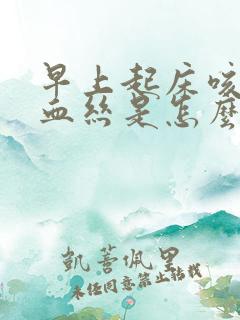 早上起床咳
血丝是怎麽
凯蓍佩里
未经同意禁止转载